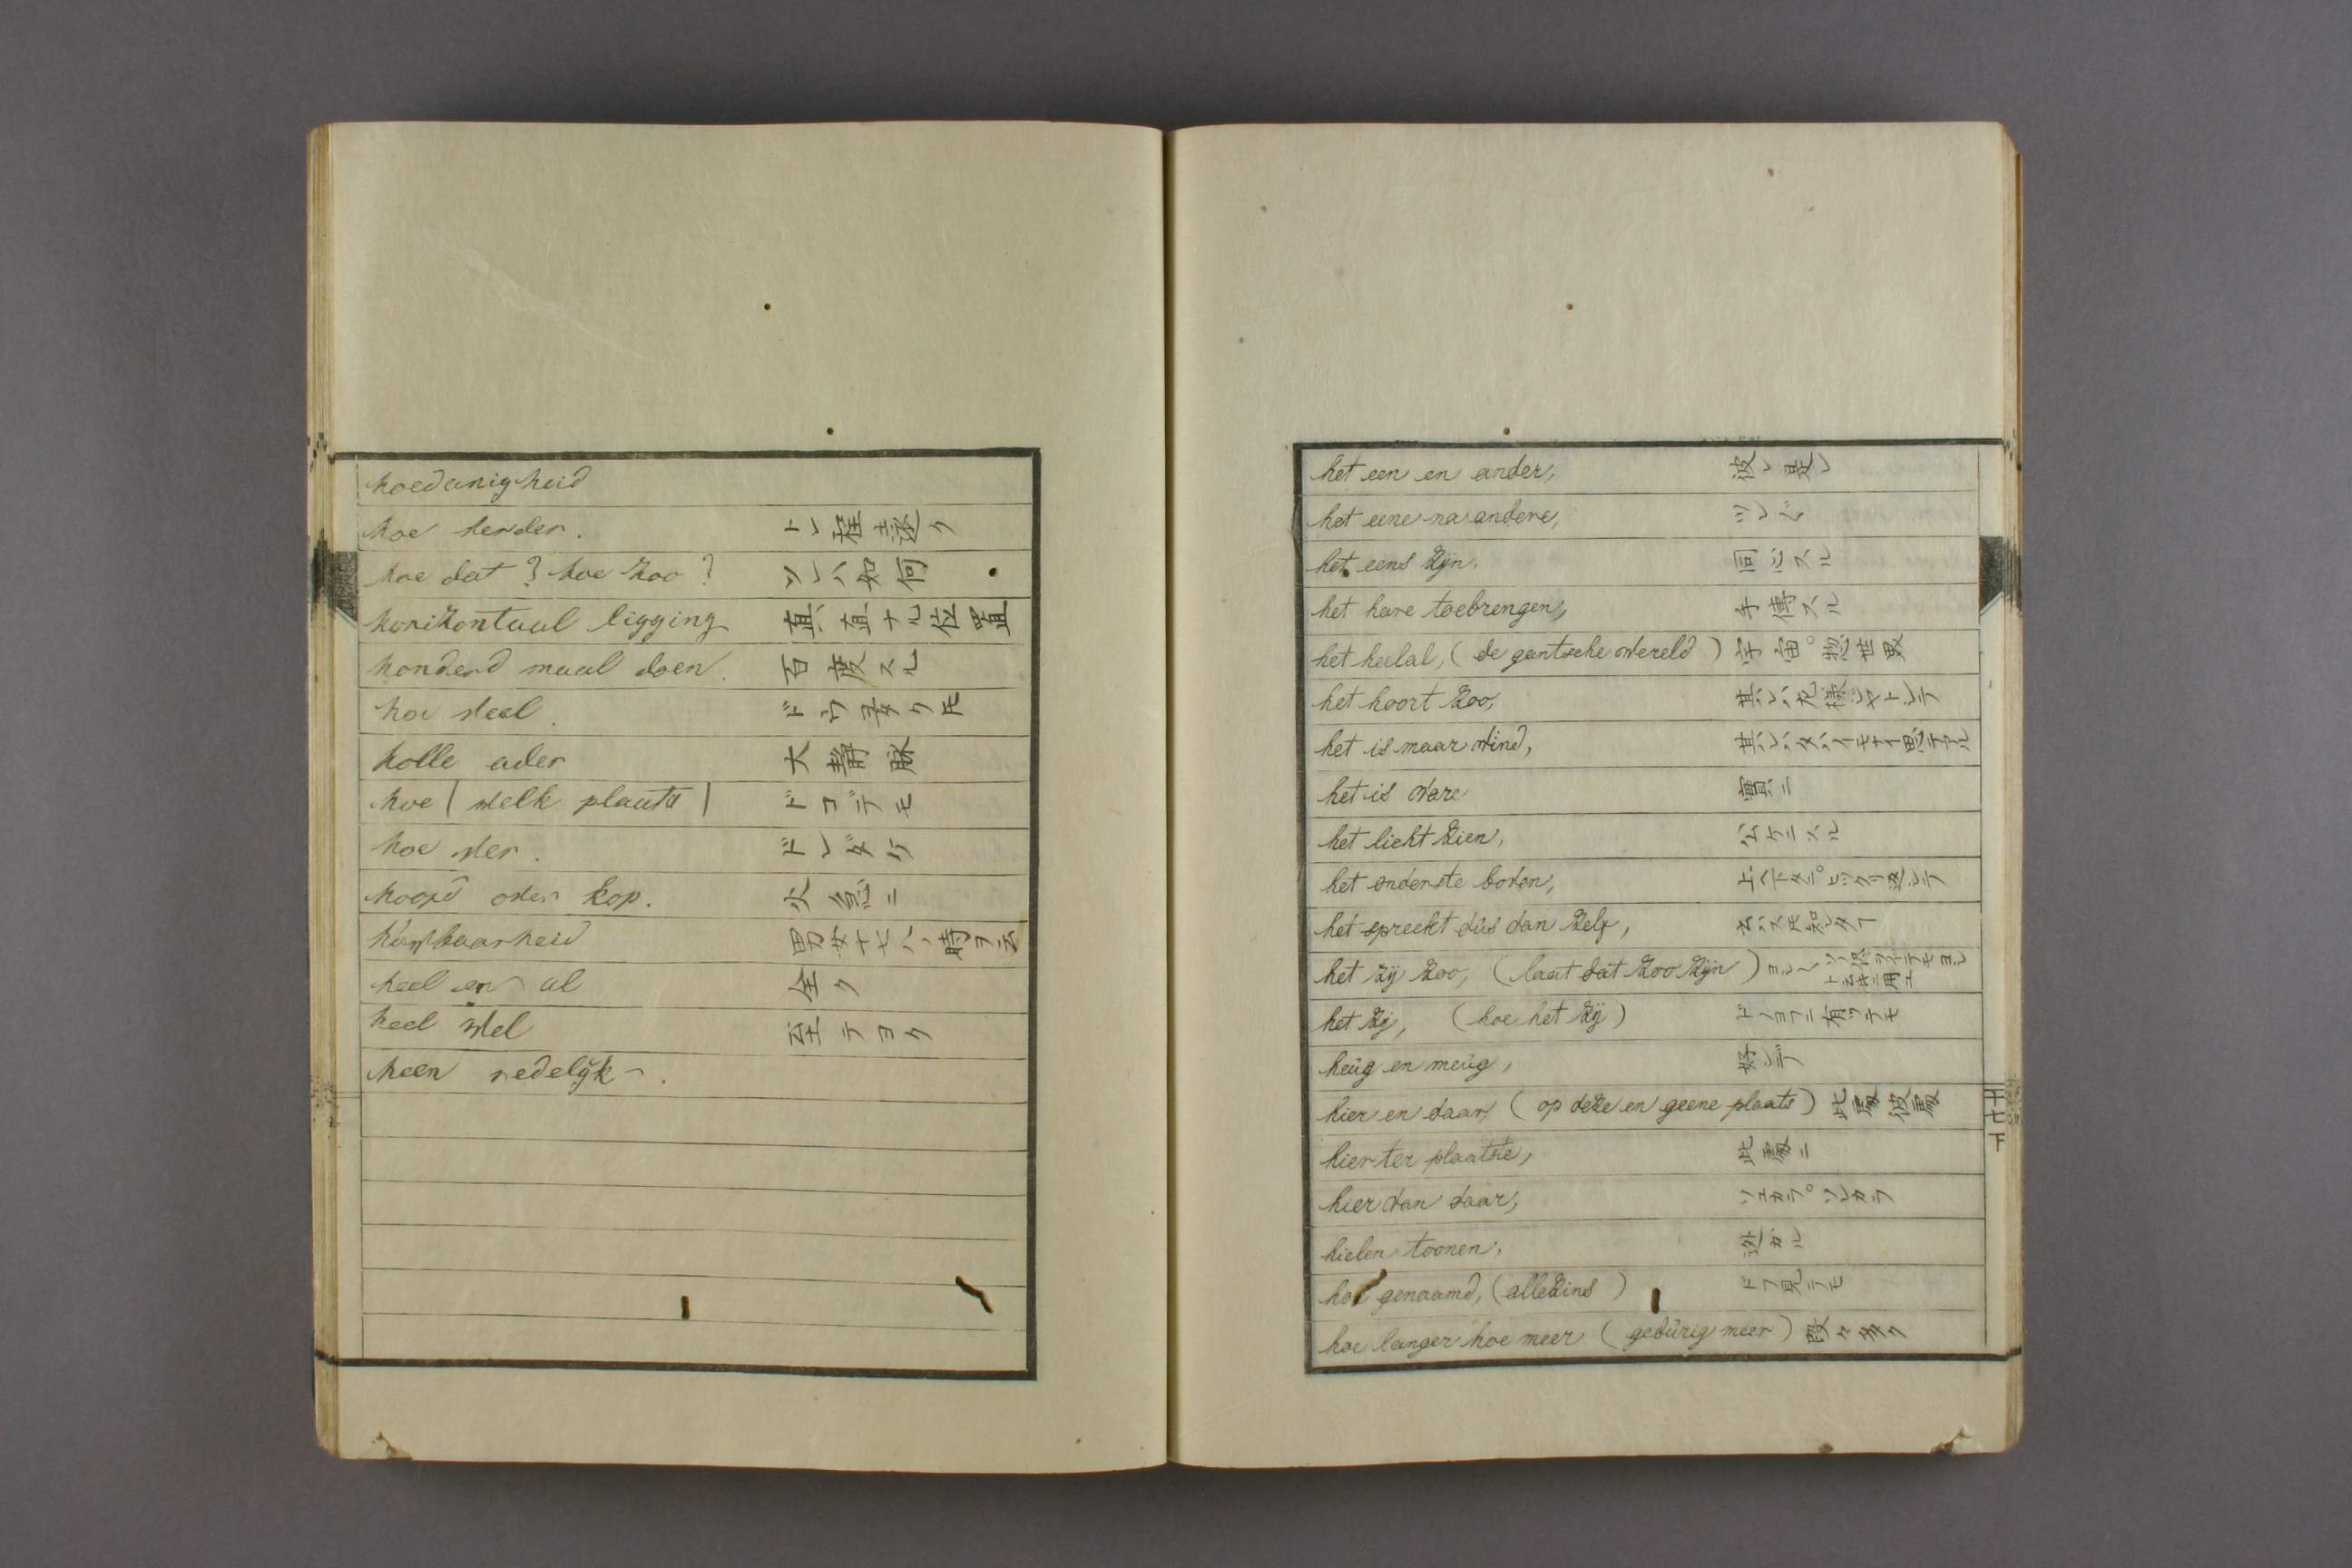 hoedanigheid
hoe verder. ドレ程遠ク
hoe dat? hoe zoo? ソレハ如何
horizontaal ligging 直ナル位置
honderd maal doen. 百度スル
hoe veel. ドウ多ク
holle ader 大静脈
hoe | welk plaats | ドコデモ
hoe ver. ドレダケ
hoofd over kop. 火急ニ
huwbaarheid 男女十七八ノ時ヲ云
heel en al 全ク
heel wel 至テヨク
heen redelijk.
het een en ander, 彼レ是レ
het eene na andere,
het eens zijn. 同心スル
het hare toebrengen, 手傳スル
het heelal, (de gantsche wereld) 宇宙。惣世界
het hoort zoo,
het is maar wind,
het is ware 實ニ
het licht zien, 公ケニスル
het onderste boven,
het spreekt dus van zelf,
het zij zoo, (laat dat zoo zijn)
het zij, (hoe het zij) ドノヨフニ有ツテモ
heug en meug, 好ンデ
hier en daar, (op deze en geene plaats) 此處彼處
hier ter plaatse, 此處ニ
hier van daar, ソエカラ。ソレカラ
hielen toonen, 迯ガル
hoe genaamd, (allezins) ドフ見テモ
hoe langer hoe meer (gedurig meer) 段々多ク
十七下